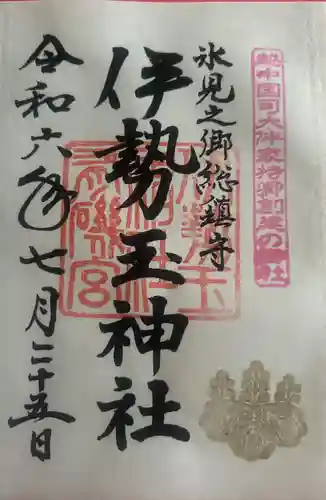 越中国司大伴家持卿創建の神社
氷見之郷総鎮守
伊勢玉神社
令和六年七月二十五日